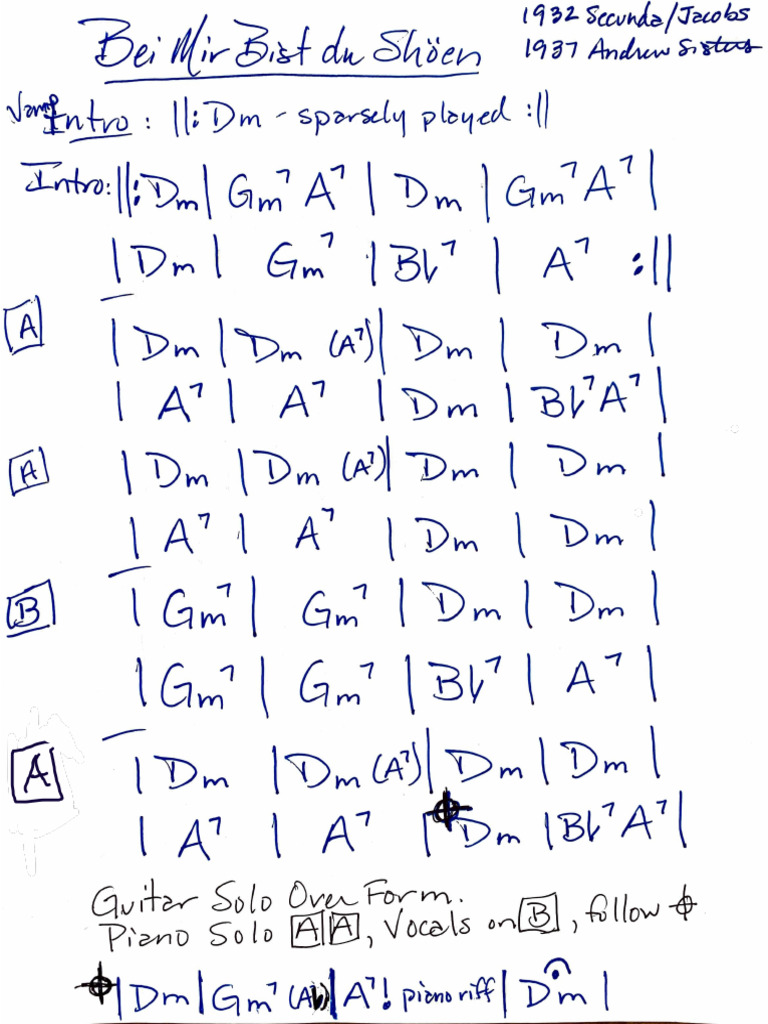 1932 Secunda/Jacobs
Bei Mir Bist du Shöen
1937 Andrew Sisters
Vamp Intro: ||: Dm - sparsely played :||
Intro: ||: Dm | Gm7 A7 | Dm | Gm7 A7 |
| Dm | Gm7 | Bb7 | A7 :||
A | Dm | Dm (A7) | Dm | Dm |
| A7 | A7 | Dm | Bb7 A7 |
A | Dm | Dm (A7) | Dm | Dm |
| A7 | A7 | Dm | Dm |
B | Gm7 | Gm7 | Dm | Dm |
| Gm7 | Gm7 | Bb7 | A7 |
A | Dm | Dm (A7) | Dm | Dm |
| A7 | A7 | Dm | Bb7 A7 |
Guitar Solo Over Form.
Piano Solo A A, Vocals on B, follow
| Dm | Gm7 (Ab) | A7! piano riff | Dm |